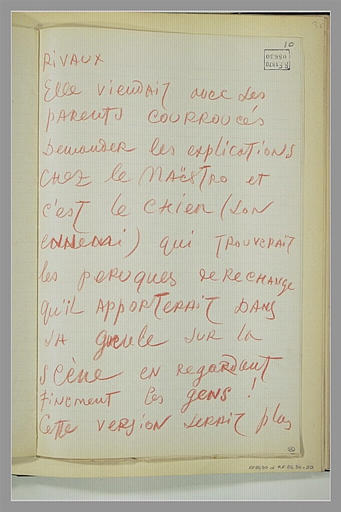 10
RIVAUX
Elle viendrait avec des
PARENTS COURROUCÉS
Demander les explications
CHEZ le MAËSTRO et
c'est le CHIEN (son
ennemi) qui TROUVERAIT
les peruques de RECHANGE
qu'il APPORTERAIT DANS
SA gueule SUR la
SCÈNE en regardant
FINEMENT les gens !
Cette VERSION SERAIT plus